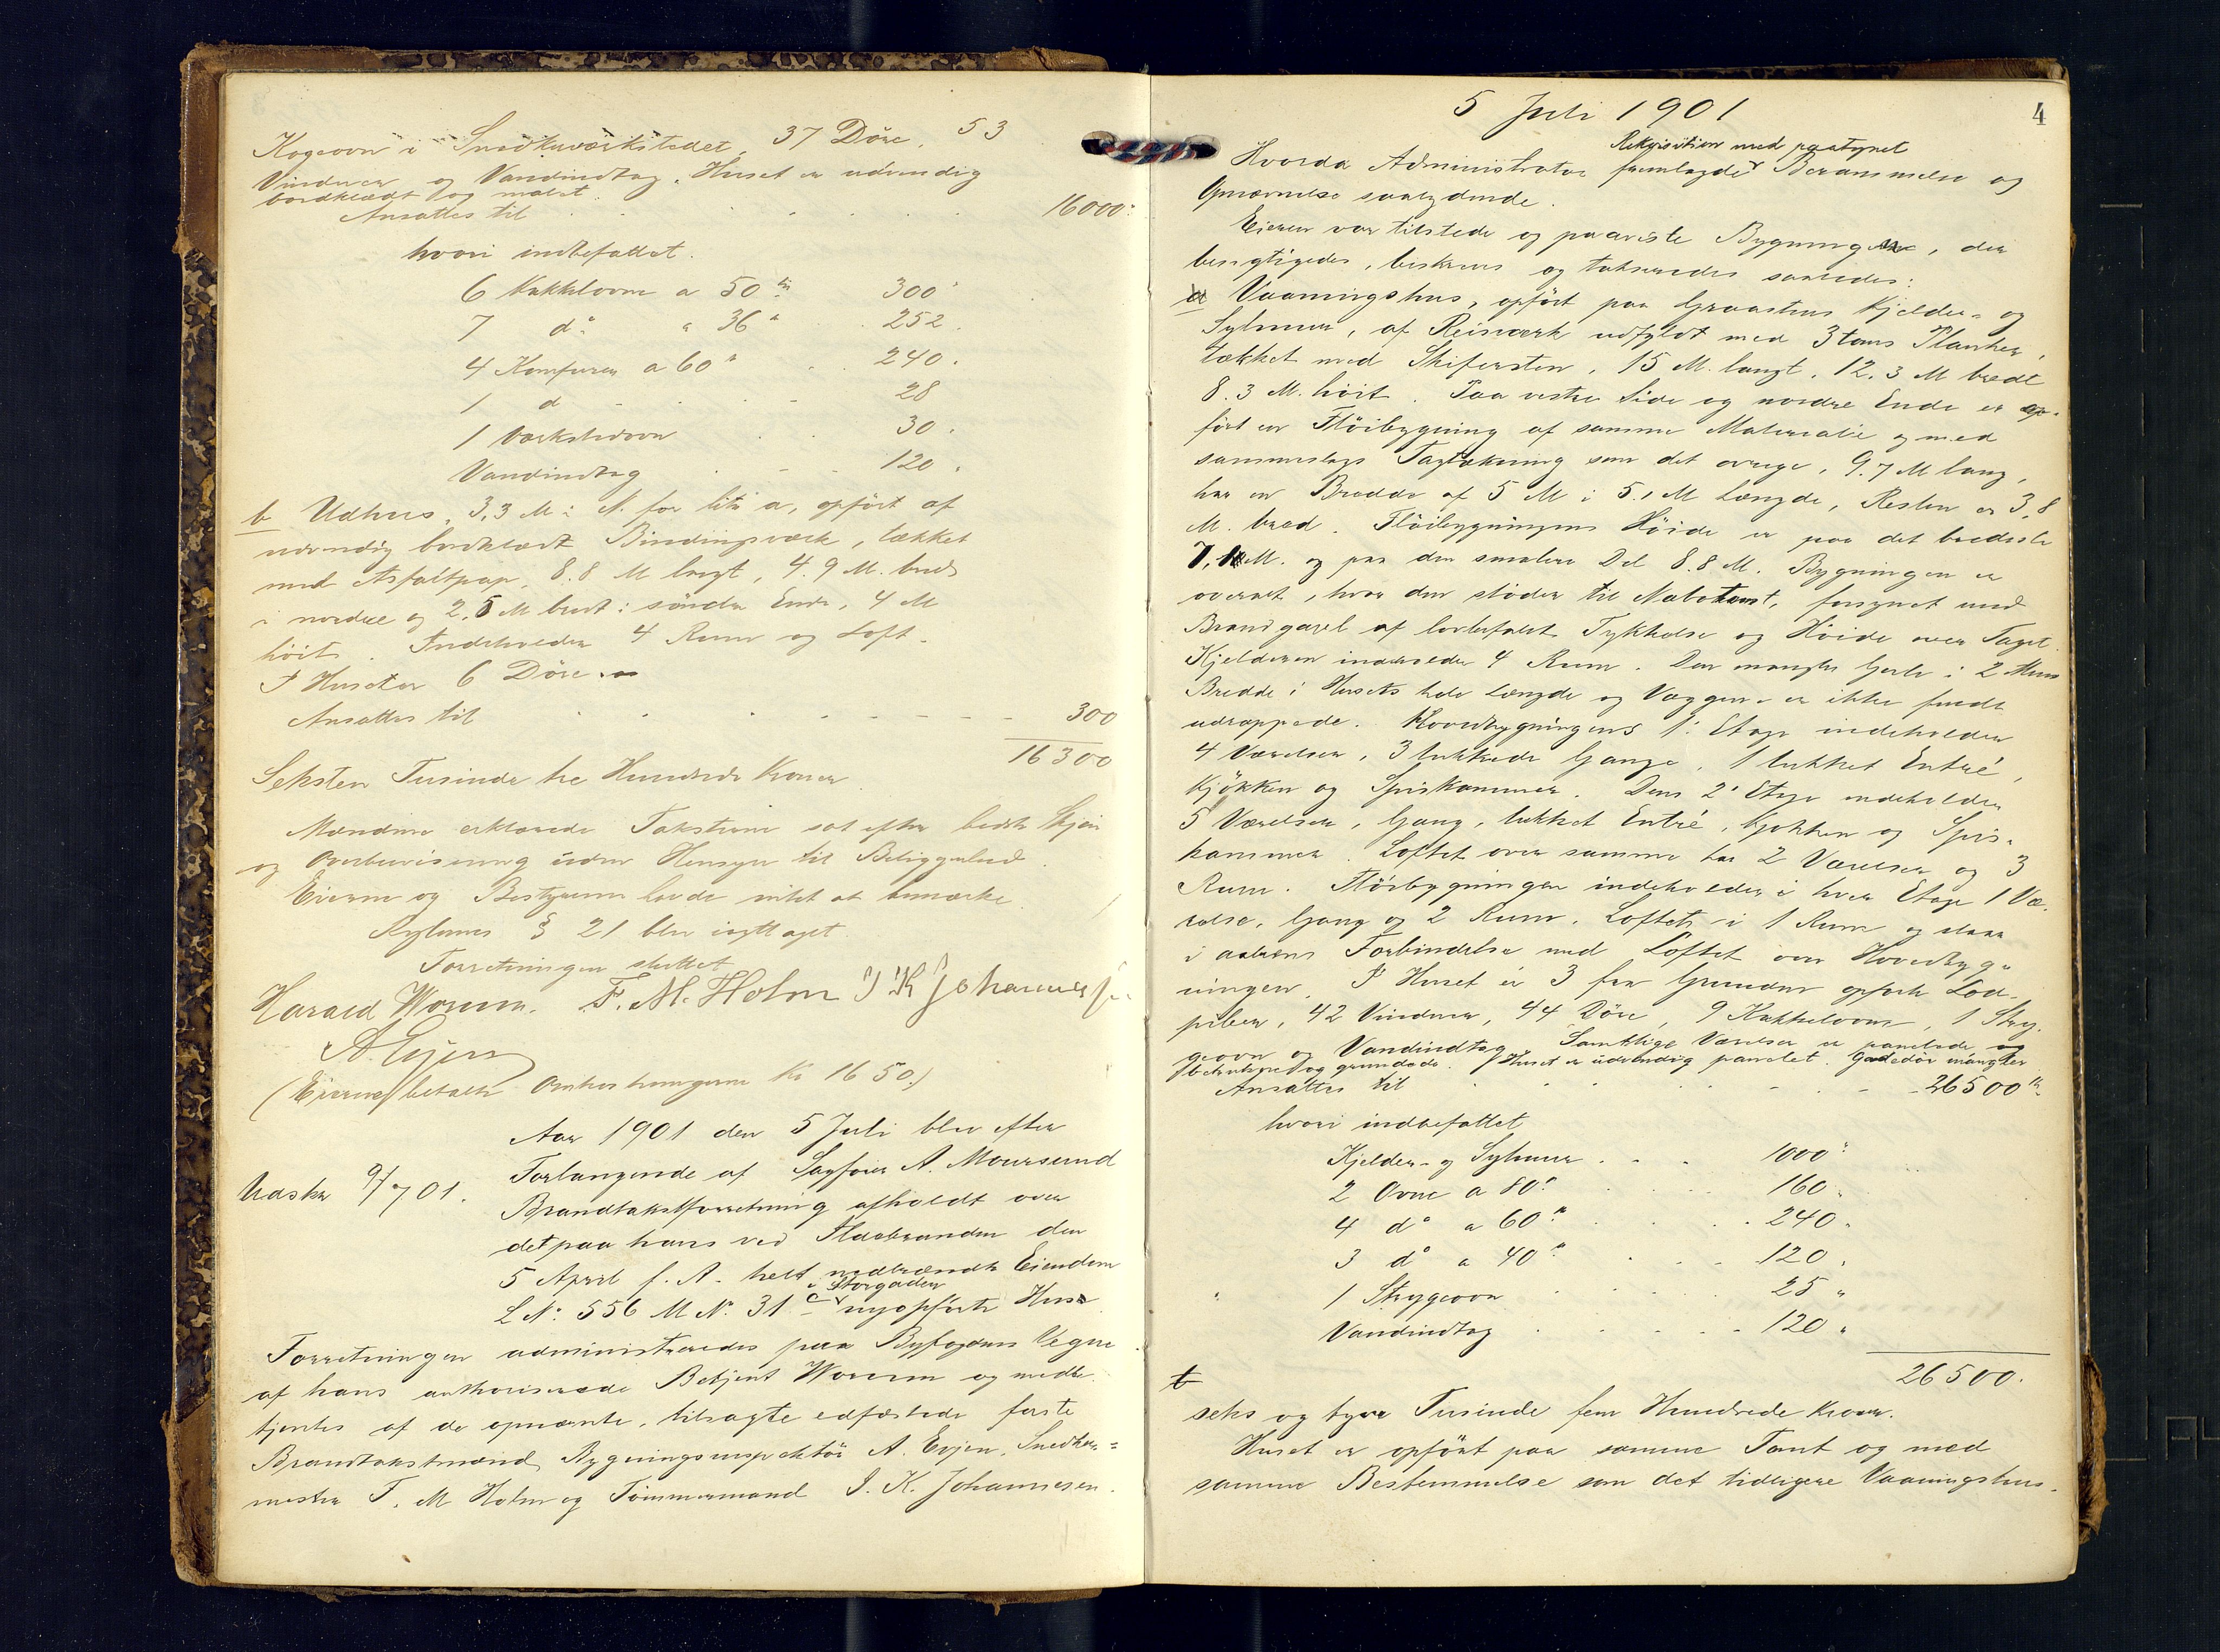 Kogeovn i Snedkerværkstedet, 37 Döre, 53
Vinduer og Vandindtag. Huset er udvendig
bordklædt og malet.
Ansattes til 16000.
hvori indbefattet.
6 Kakkelovne a 50 kr 300
7 do a 36 " 252.
4 Komfurer a 60 " 240.
1 d 28
1 Værkstedovn 30.
Vandindtag 120.
b Udhus, 3,3 M. i N. for litr a, opfört af
udvendig bordklædt Bindingsværk, tækket
med Asfaltpap, 8.8 M langt, 4.9 M. bredt
i nordre og 2,5 M bredt i söndre Ende, 4 M
höit. Indeholder 4 Rum og Loft.
I Huset er 6 Döre.
Ansattes til 300
16300
Seksten Tusinde tre Hundrede Kroner
Mændene erklærede Taksterne sat efter bedste Skjön
og Overbevisning uden Hensyn til Beliggenhed.
Eierne og Bestyreren havde intet at bemærke.
Reglernes § 21 blev iagttaget.
Forretningen sluttet
Harald Worum. F. M. Holm J K Johannesen
A. Evjen
(Eierne betalte Omkostningerne Kr 16 50.)
Aar 1901 den 5 Juli blev efter
Udskr 9/7 01. Forlangende af Sagförer A. Moursund
Brandtakstforretning afholdt over
det paa hans ved Ildebranden den
5 April f. A. helt nedbrændte Eiendom
i Storgaden
L No. 556 M No. 31 c nyopförte Hus
Forretningen administreredes paa Byfogdens Vegne
af hans authoriserede Betjent Worum og medbe-
tjentes af de opnævnte, tilsagte edfæstede faste
Brandtakstmænd, Bygningsinspektör A. Evjen, Snedker-
mester F. M Holm og Tömmermand J. K. Johannesen.
5 Juli 1901
4
Rekvisition med paategnet
Hvorda Administrator fremlagde Berammelse og
Opnævnelse saalydende.
Eieren var tilstede og paaviste Bygningen, der
besigtigedes, beskrevs og taksteredes saaledes:
a Vaaningshus, opfört paa Graastens Kjelder- og
Sylmur, af Reisværk udfyldt med 3 toms Planker,
tækket med Skifersten, 15 M. langt, 12.3 M bredt
8.3 M. höit. Paa vestre Side og nordre Ende er op-
fört en Flöibygning af samme Materiale og med
sammeslags Tagtækning som det övrige, 9.7 M lang,
har en Bredde af 5 M i 5.1 M Længde, Resten er 3,8
M. bred. Flöibygningens Höide er paa det bredeste
7,1 M. og paa den smalere Del 8.8 M. Bygningen er
overalt, hvor den stöder til Nabotomt, forsynet med
Brandgavl af lovbefalet Tykkelse og Höide over Taget.
Kjelderen indeholder 4 Rum. Der mangler Gulv i 2 Rums
Bredde i Husets hele Længde og Væggene er ikke fuldt
udrappede. Hovedbygningens 1. Etage indeholder
4 Værelser, 3 lukkede Gange, 1 lukket Entré,
Kjökken og Spiskammer. Dens 2. Etage indeholder
5 Værelser, Gang, lukket Entré, Kjökken og Spis-
kammer. Loftet over samme har 2 Værelser og 3
Rum. Flöibygningen indeholder i hver Etage 1 Væ-
relse, Gang og 2 Rum. Loftet er i 1 Rum og staar
i aaben Forbindelse med Loftet over Hovedbyg-
ningen. I Huset er 3 fra Grunden opförte Lod-
piber, 42 Vinduer, 44 Döre, 9 Kakkelovne, 1 Stry-
geovn og Vandindtag. Samtlige Værelser er panelede og
betrukne og grundede. Huset er udvendig panelet. Gadedör mangler
Ansættes til 26500 Kr
hvori indbefattet
Kjelder- og Sylmur 1000
2 Ovne a 80 kr 160.
4 do a 60 kr 240.
3 do a 40 kr 120.
1 Strygeovn 25 "
Vandindtag 120 "
26500.
seks og tyve Tusinde fem Hundrede Kroner.
Huset er opfört paa samme Tomt og med
samme Bestemmelse som det tidligere Vaaningshus.